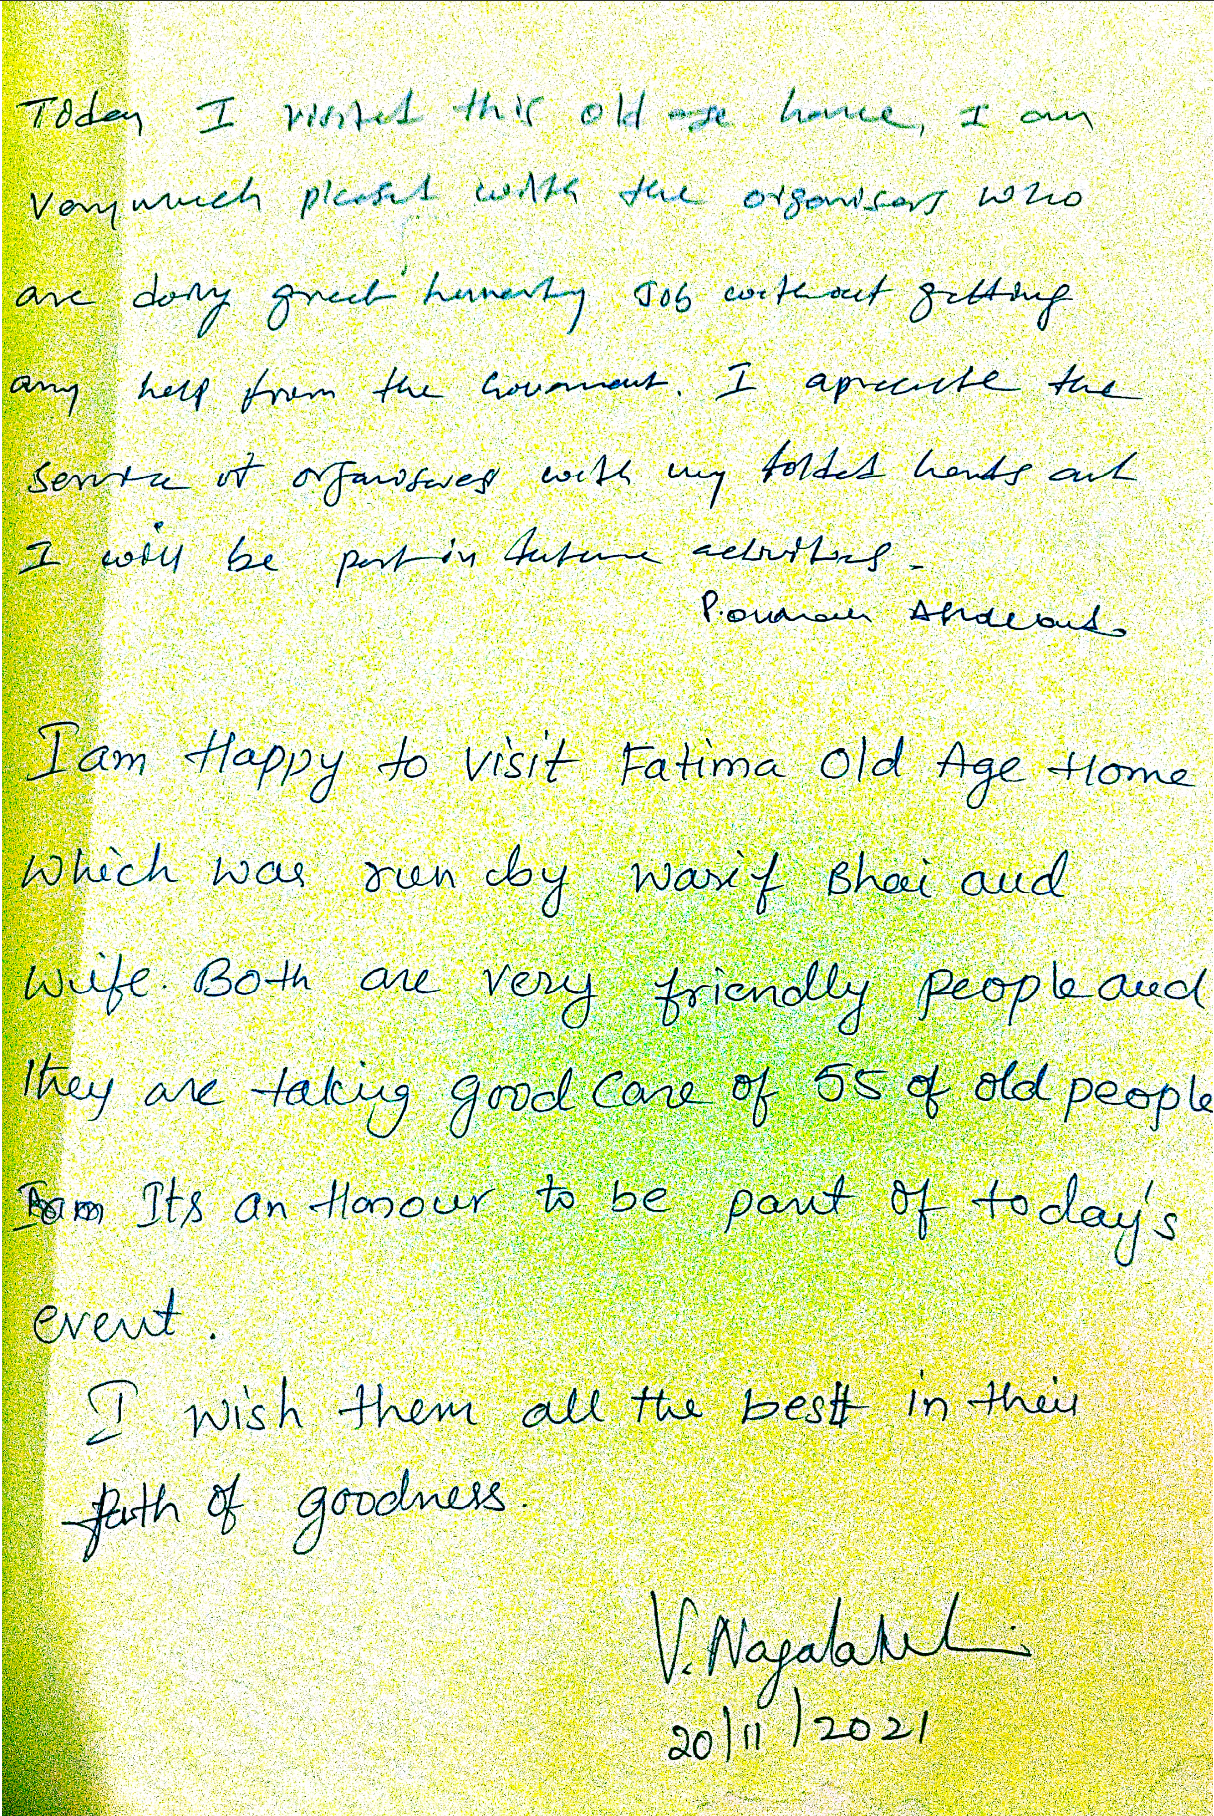 Today I visited this old age home, I am
Very much pleased with the organisers who
are doing great humanity Job without getting
any help from the Government. I apreciate the
service of organisers with my folded hands and
I will be part in future activities.
P.
I am Happy to visit Fatima Old Age Home
which was run by Wasif Bhai and
wife. Both are very friendly people and
they are taking good Care of 55 of old people
Its an Honour to be part of today's
event.
I wish them all the best in their
path of goodness.
V. Nagalakshmi
20/11/2021